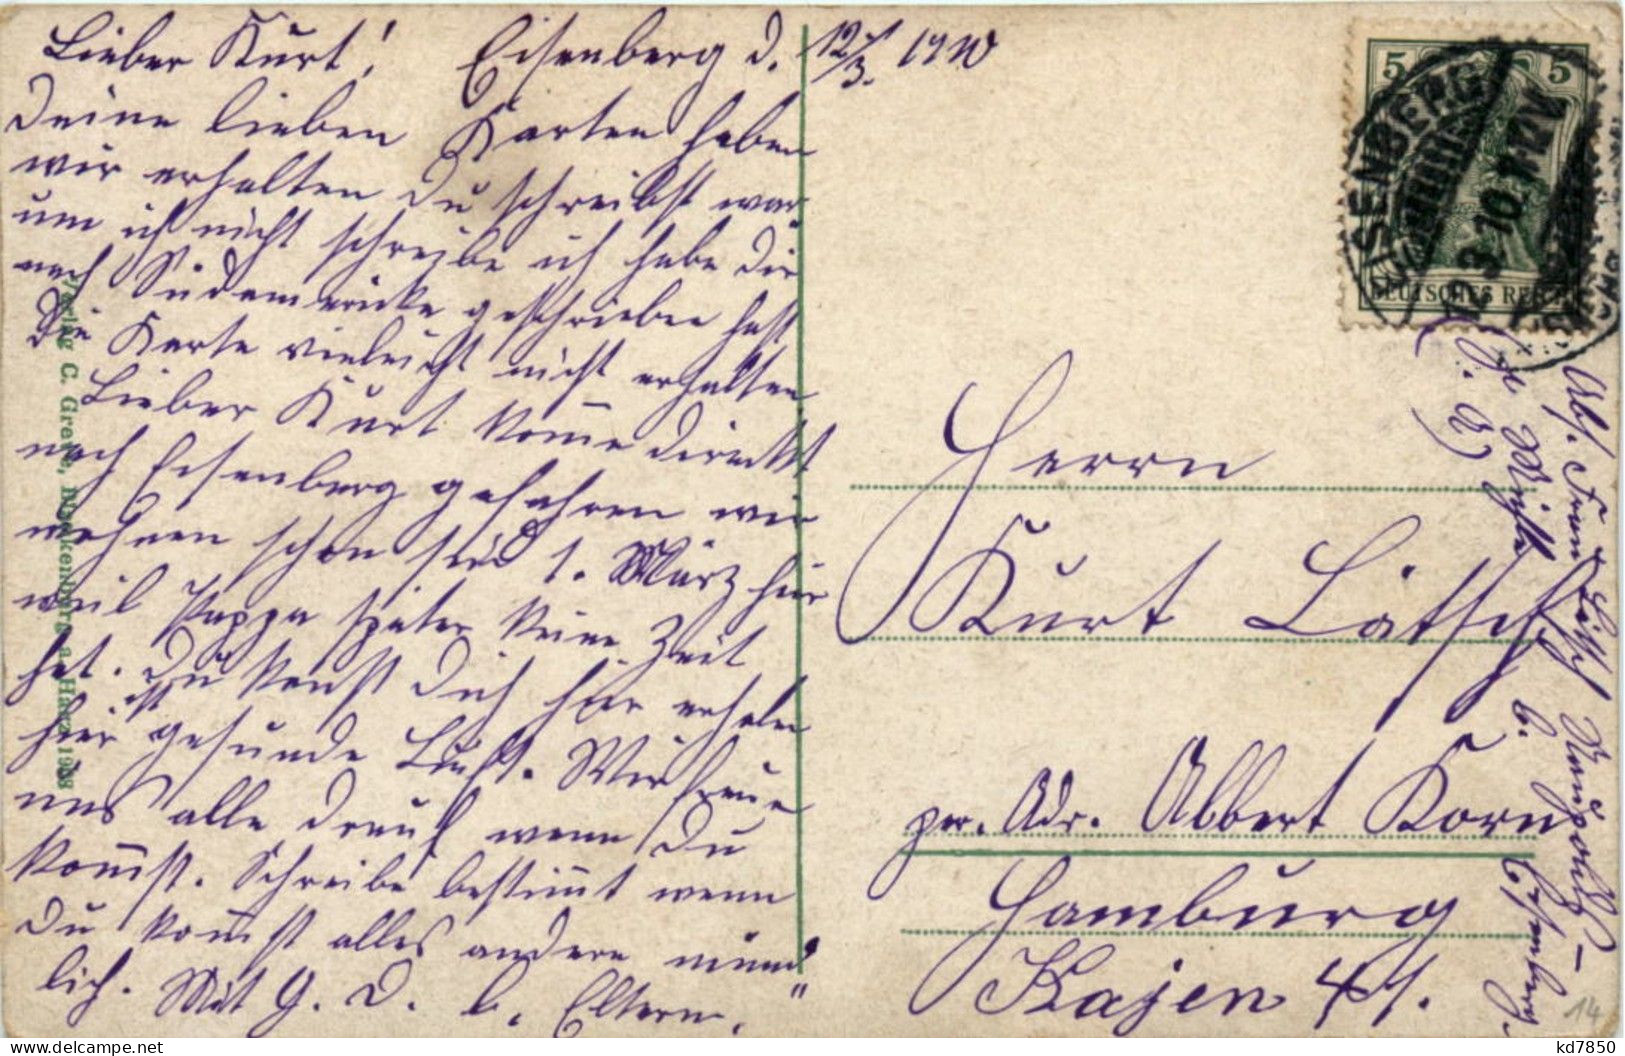 Lieber Kurt! Eisenberg d. 12/3. 1910
Deine lieben Karten haben
wir erhalten Du schreibst war
um ich nicht schreibe ich habe Dir
nach Südamericka geschrieben hast
Die Karte vieleicht nicht erhalten,
Lieber Kurt kom̄e direckt
nach Eisenberg gefahren wir
wohnen schon seid 1. März hier
weil Pappa später keine Zeit
hat. Du kanst Dich hier erholen
hier ist gesunde Luft. Wir freue
uns alle drauf wenn Du
kom̄st. Schreibe bestim̄t wenn
Du kom̄st alles andere münd
lich. Mit G. D. l. Eltern.
Verlag C. Grape, Blankenburg a. Harz 1908
5 5
DEUTSCHES REICH
EISENBERG
12.3.10.11-12V.
Herrn
Kurt Lätsch
per. Adr. Albert Korn
Hamburg
Kajen 41.
Abs. Frau Lätsch
b. Eisenberg.
14
kd7850